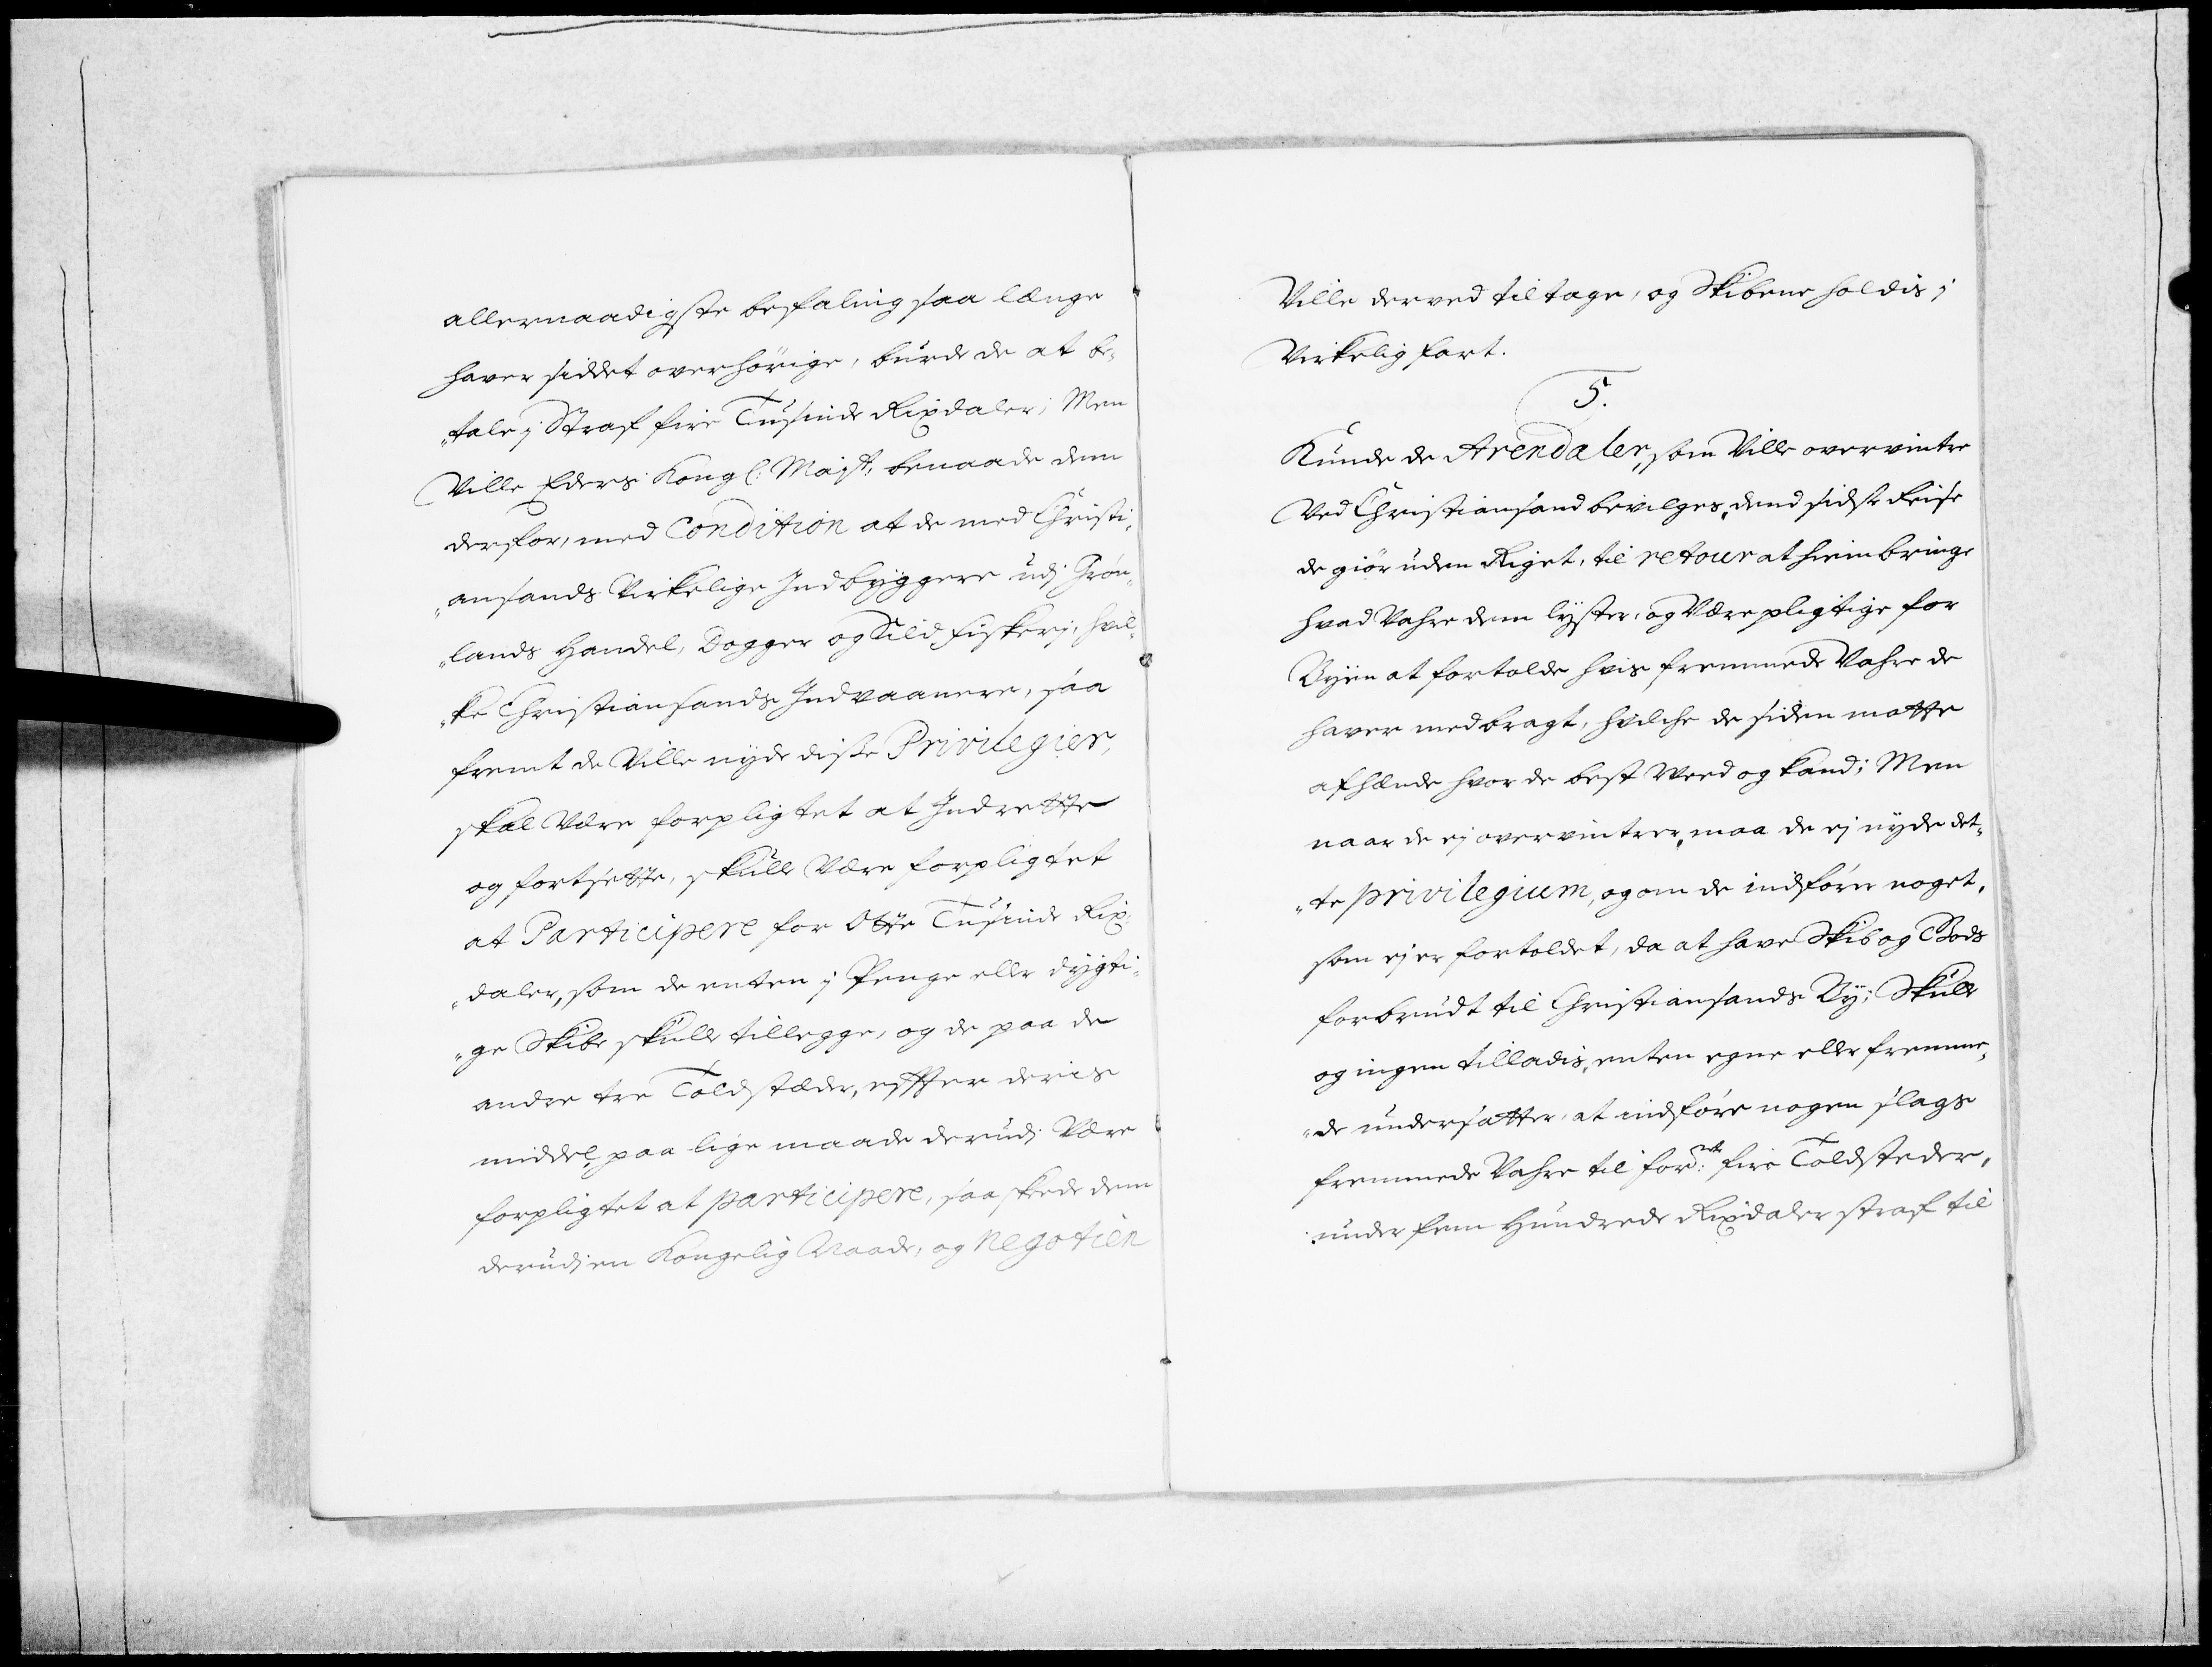 allernaadigste befaling saa længe
haver siddet overhörige, burde de at be-
„tale j Straf fire Tusinde Rixdaler; Men
Ville Eders Kongl: Mayt: benaade dem
derfor, med Condition at de med Christi-
„ansands Virkelige Indbyggere udj Grön-
„lands Handel, Dogger og Sild fiskerj, hvil-
„ke Christiansands Indvaanere, saa
fremt de Ville nyde disse Privilegier,
skal Være forpligtet at Indrette
og fortsette, skulle Være forpligtet
at Participere for Otte Tusinde Rix-
„daler, som de enten j Penge eller dygti-
„ge Skibe skulle tillegge, og de paa de
andre tre Toldstæder, effter deris
middel, paa lige maade derudj Være
forpligtet at participere, saa skede dem
derudj en Kongelig Naade, og Negotien
Ville derved tiltage, og Skibene holdis j
Virkelig fart.
5.
Kunde de Arendaler, som Ville overvintre
Ved Christiansand bevilges, dend sidste Reise
de giör uden Riget, til retour at hiembringe
hvad Vahre dem lyster, og Være pligtige for
Byen at fortolde hvis fremmede Vahre de
haver medbragt, hvilche de siden motte
afhænde hvor de best Veed og kand; Men
naar de ej overvintrer, maa de ej nyde det-
„te privilegium, og om de indförer noget,
som ej er fortoldet, da at have Skib og Gods
forbrudt til Christiansands By; Skulle
og ingen tilladis, enten egne eller fremme-
„de undersatter, at indföre nogen slags
fremmede Vahre til forne: fire Toldsteder,
under fem Hundrede Rixdaler straf til